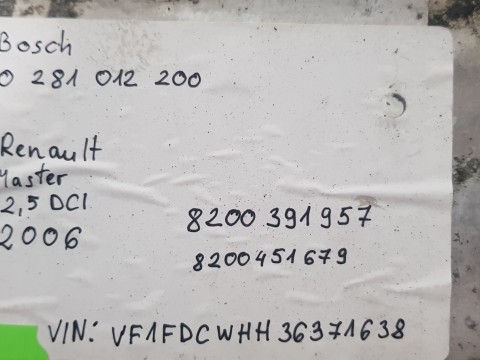 Bosch
0 281 012 200
Renault
Master
2,5 DCI
2006
8200 391957
8200451679
VIN: VF1FDCWHH36371638